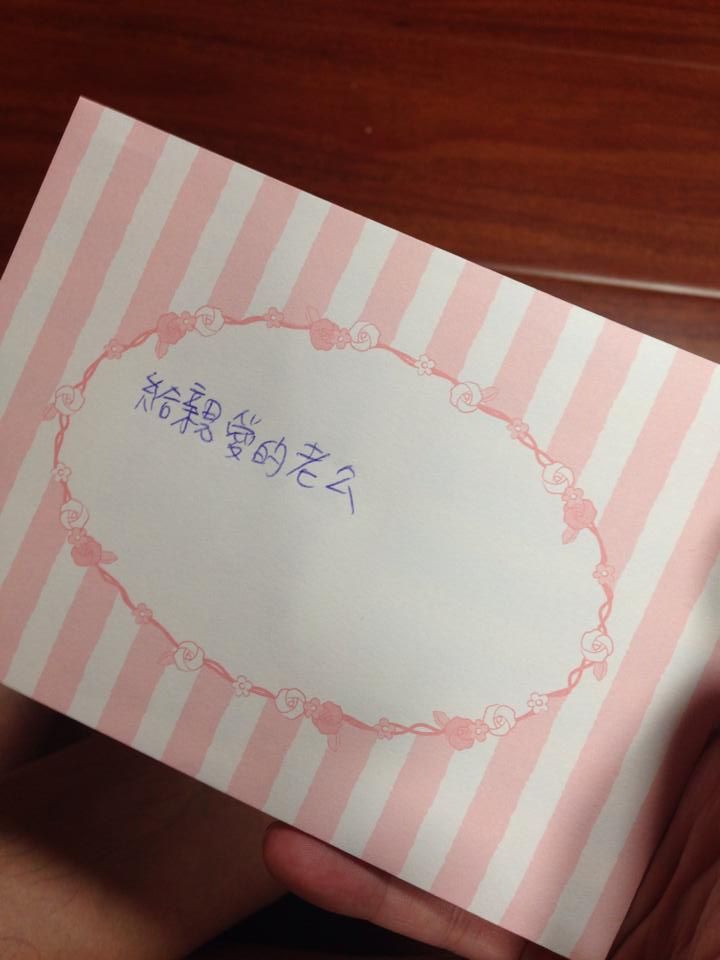 給親愛的老公